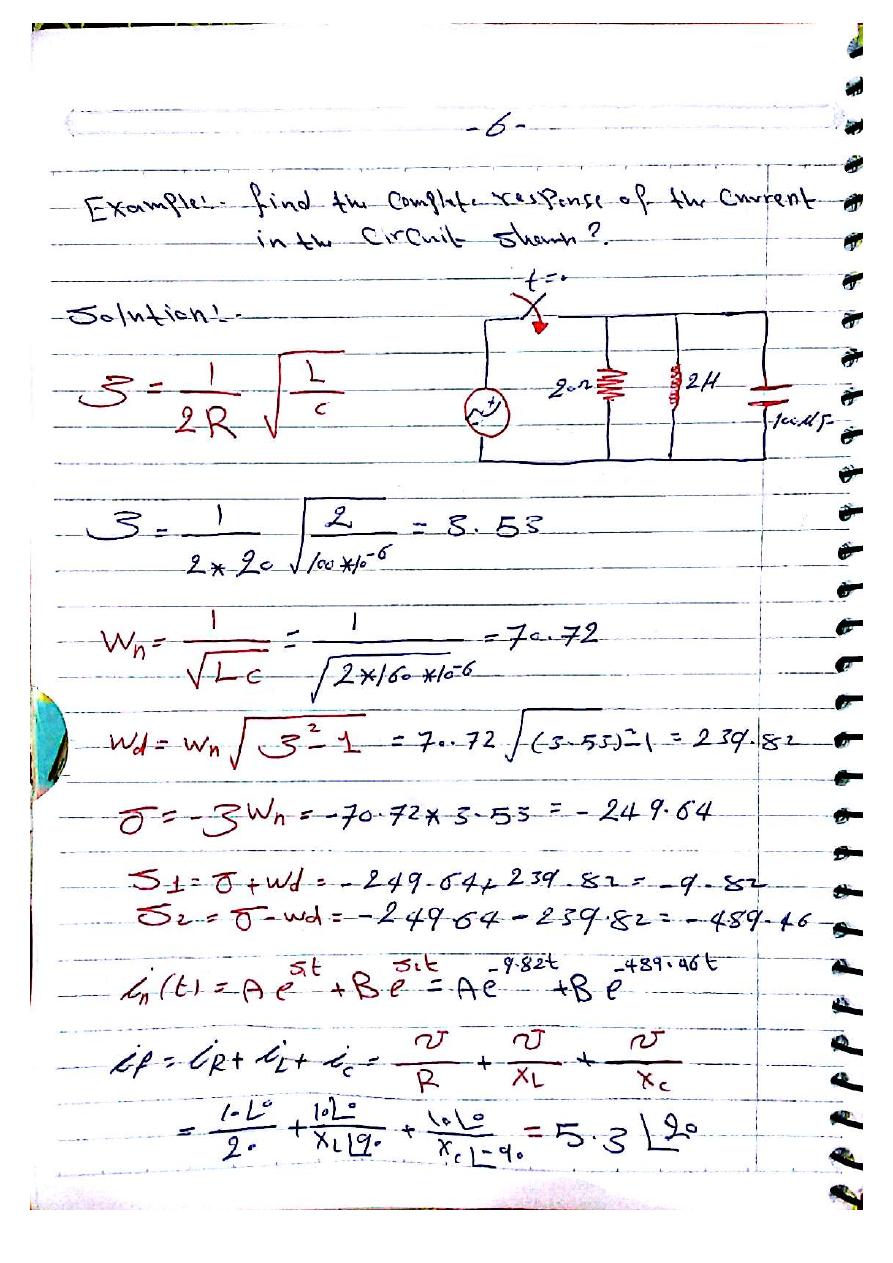 -6-
Example:- find the Complete response of the Current
in the Circuit shown?.
t=0
Solution:-
20Ω 2H 100μF
ζ = 1/2R √L/c
ζ = 1/2*20 √2/100*10^-6 = 3.53
Wn = 1/√Lc = 1/√2*100*10^-6 = 70.72
Wd = Wn √ζ²-1 = 70.72 √(3.53)²-1 = 239.82
σ = -ζWn = -70.72*3.53 = -249.64
S1 = σ+wd = -249.64+239.82 = -9.82
S2 = σ-wd = -249.64-239.82 = -489.46
in(t) = A e^S1t + B e^S2t = A e^-9.82t + B e^-489.46t
if = iR + iL + ic = v/R + v/XL + v/Xc
= 10∠0/20 + 10∠0/XL∠90 + 10∠0/Xc∠-90 = 5.3∠20